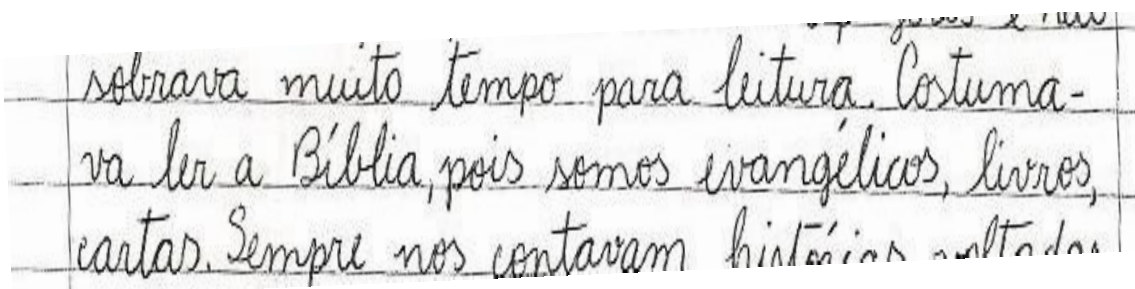 sobrava muito tempo para leitura. Costuma-
va ler a Bíblia, pois somos evangélicos, livros,
cartas. Sempre nos contavam histórias voltadas